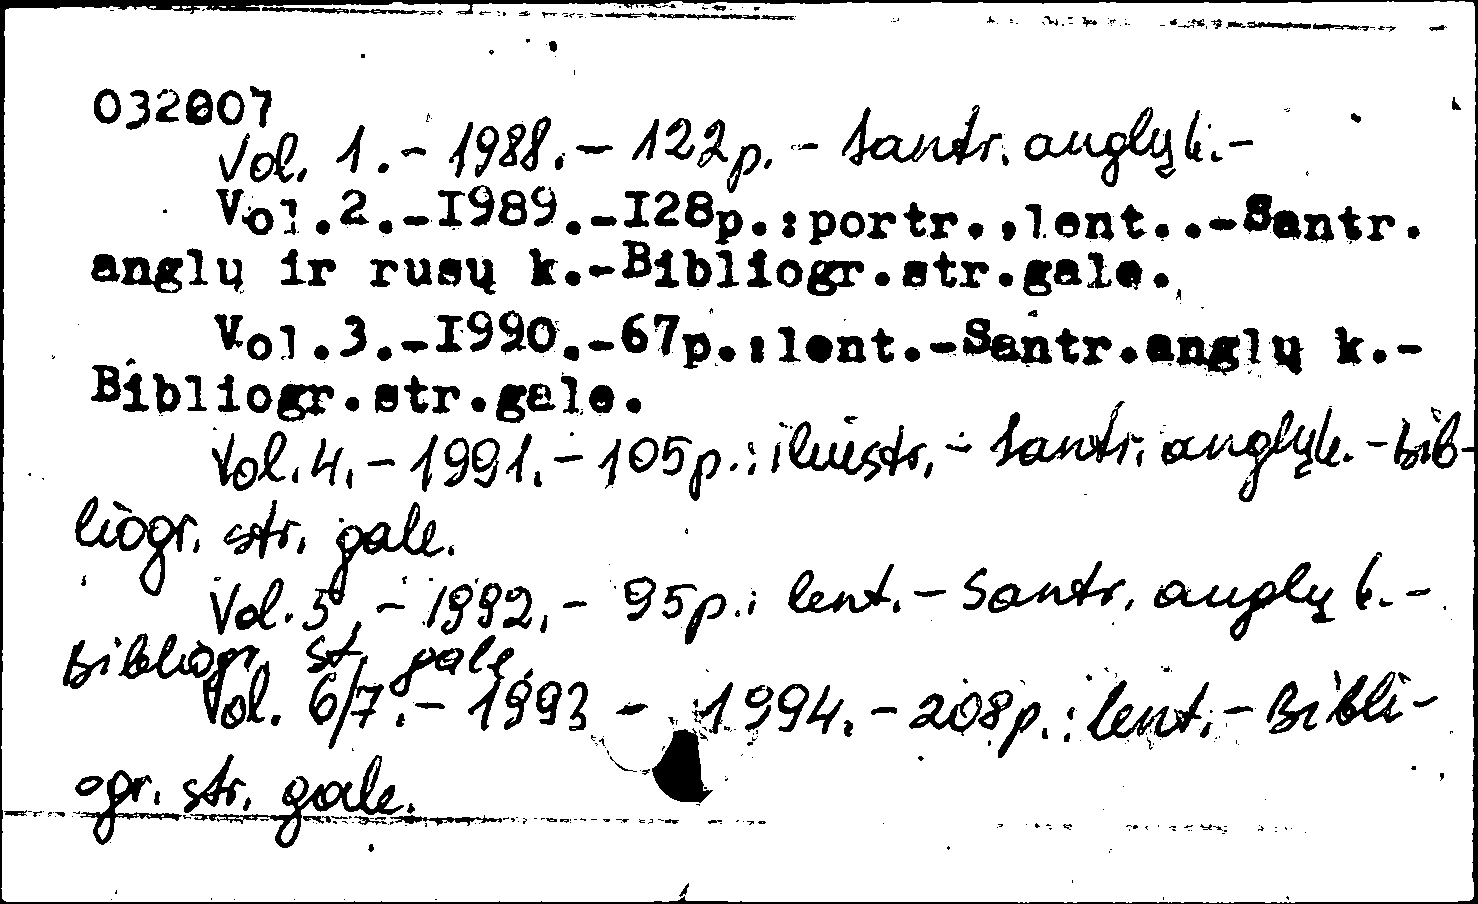 032007
Vol. 1.- 1988.- 122p.- Santr. anglų k.-
Vol.2.-I989.-I28p.:portr.,lent..-Santr.
anglų ir rusų k.-Bibliogr.str.gale.
Vol.3.-I990.-67p.:lent.-Santr.anglų k.-
Bibliogr.str.gale.
Vol.4.-1991.-105p.: iliustr.- Santr. anglų k.-Bib-
liogr. str. gale.
Vol.5.-1992.- 95p.: lent.- Santr. anglų k.-
Bibliogr. st. gale.
Vol. 6/7.- 1993 - 1994.- 208p.: lent.- Bibli-
ogr. str. gale.